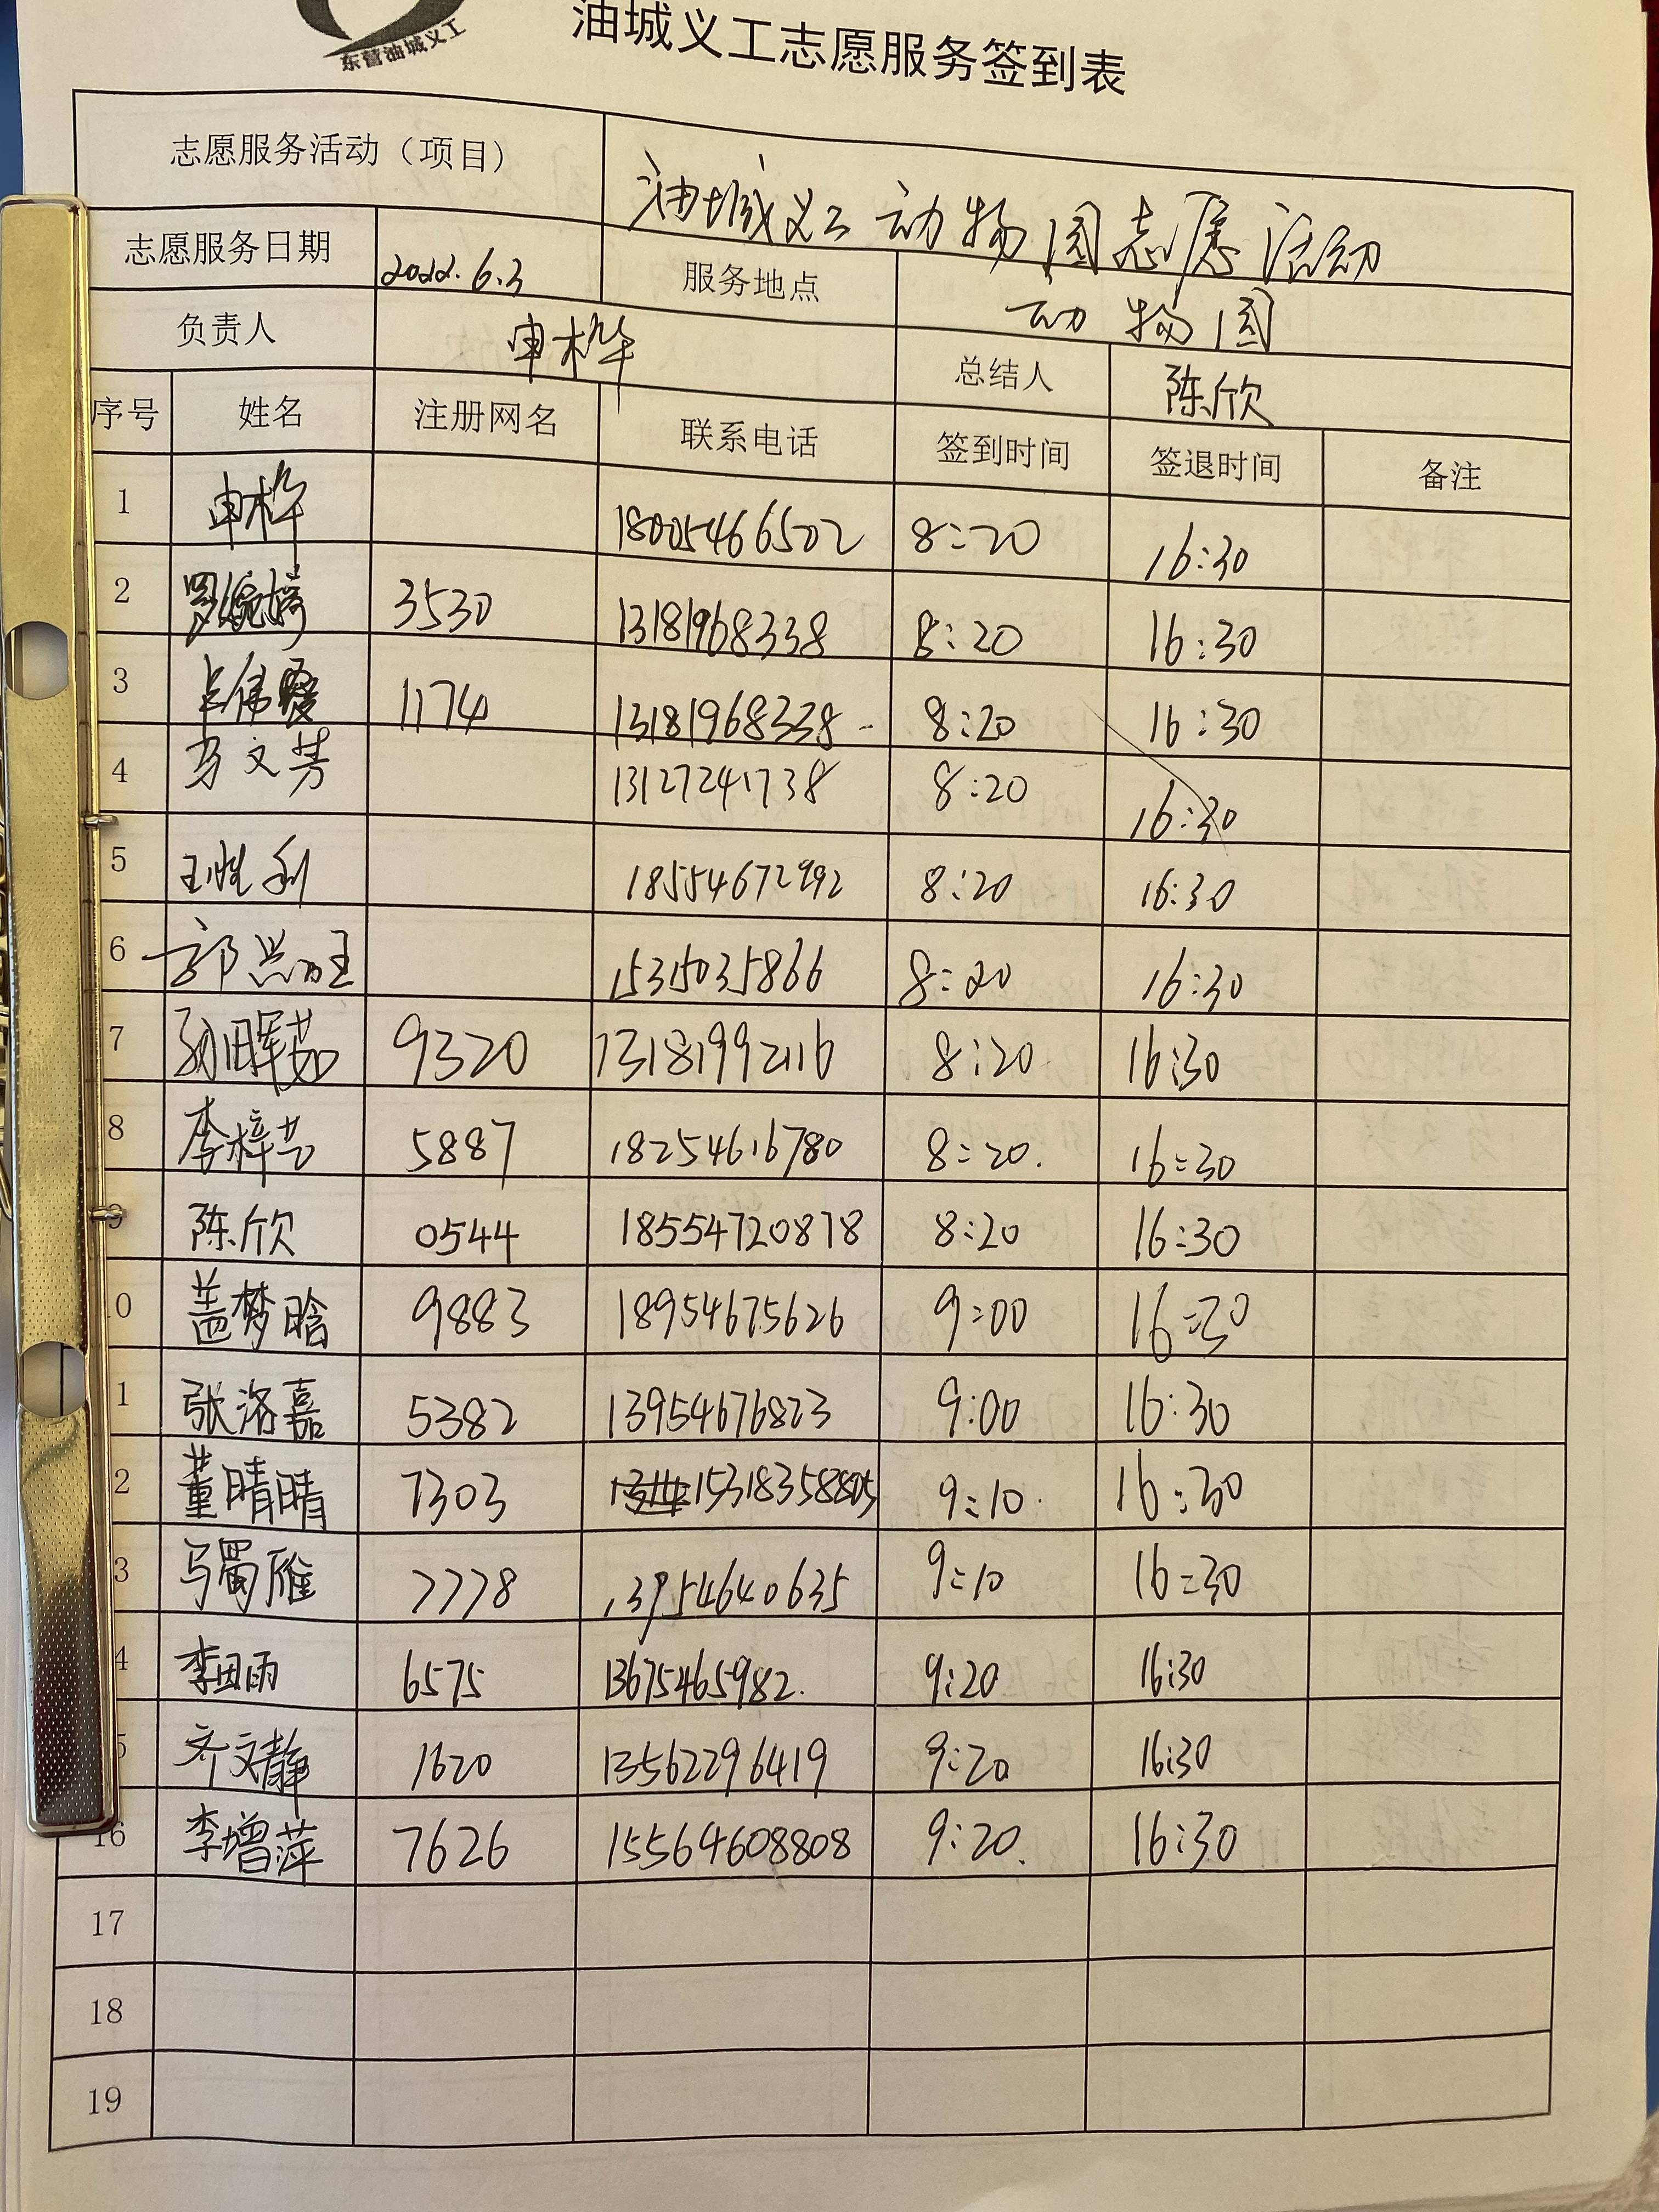 东营油城义工
油城义工志愿服务签到表
志愿服务活动（项目） 油城义工动物园志愿活动
志愿服务日期 2022.6.3 服务地点 动物园
负责人 申桦 总结人 陈欣
序号 姓名 注册网名 联系电话 签到时间 签退时间 备注
1 申桦 18005466502 8:20 16:30
2 3530 13181968338 8:20 16:30
3 1174 13181968338 8:20 16:30
4 文芳 13127241738 8:20 16:30
5 王胜利 18554672992 8:20 16:30
6 郭兴旺 15315035866 8:20 16:30
7 9320 13181992116 8:20 16:30
8 李梓艺 5887 18254616780 8:20. 16:30
9 陈欣 0544 18554720878 8:20 16:30
10 盖梦晗 9883 18954675626 9:00 16:30
1 张洛嘉 5382 13954676823 9:00 16:30
2 董晴晴 7303 15318358805 9:10 16:30
3 马蜀雁 7778 13954640635 9:10 16:30
4 李因雨 6575 13675465982. 9:20 16:30
5 齐文静 1620 13562296419 9:20 16:30
16 李增萍 7626 15564608808 9:20. 16:30
17
18
19